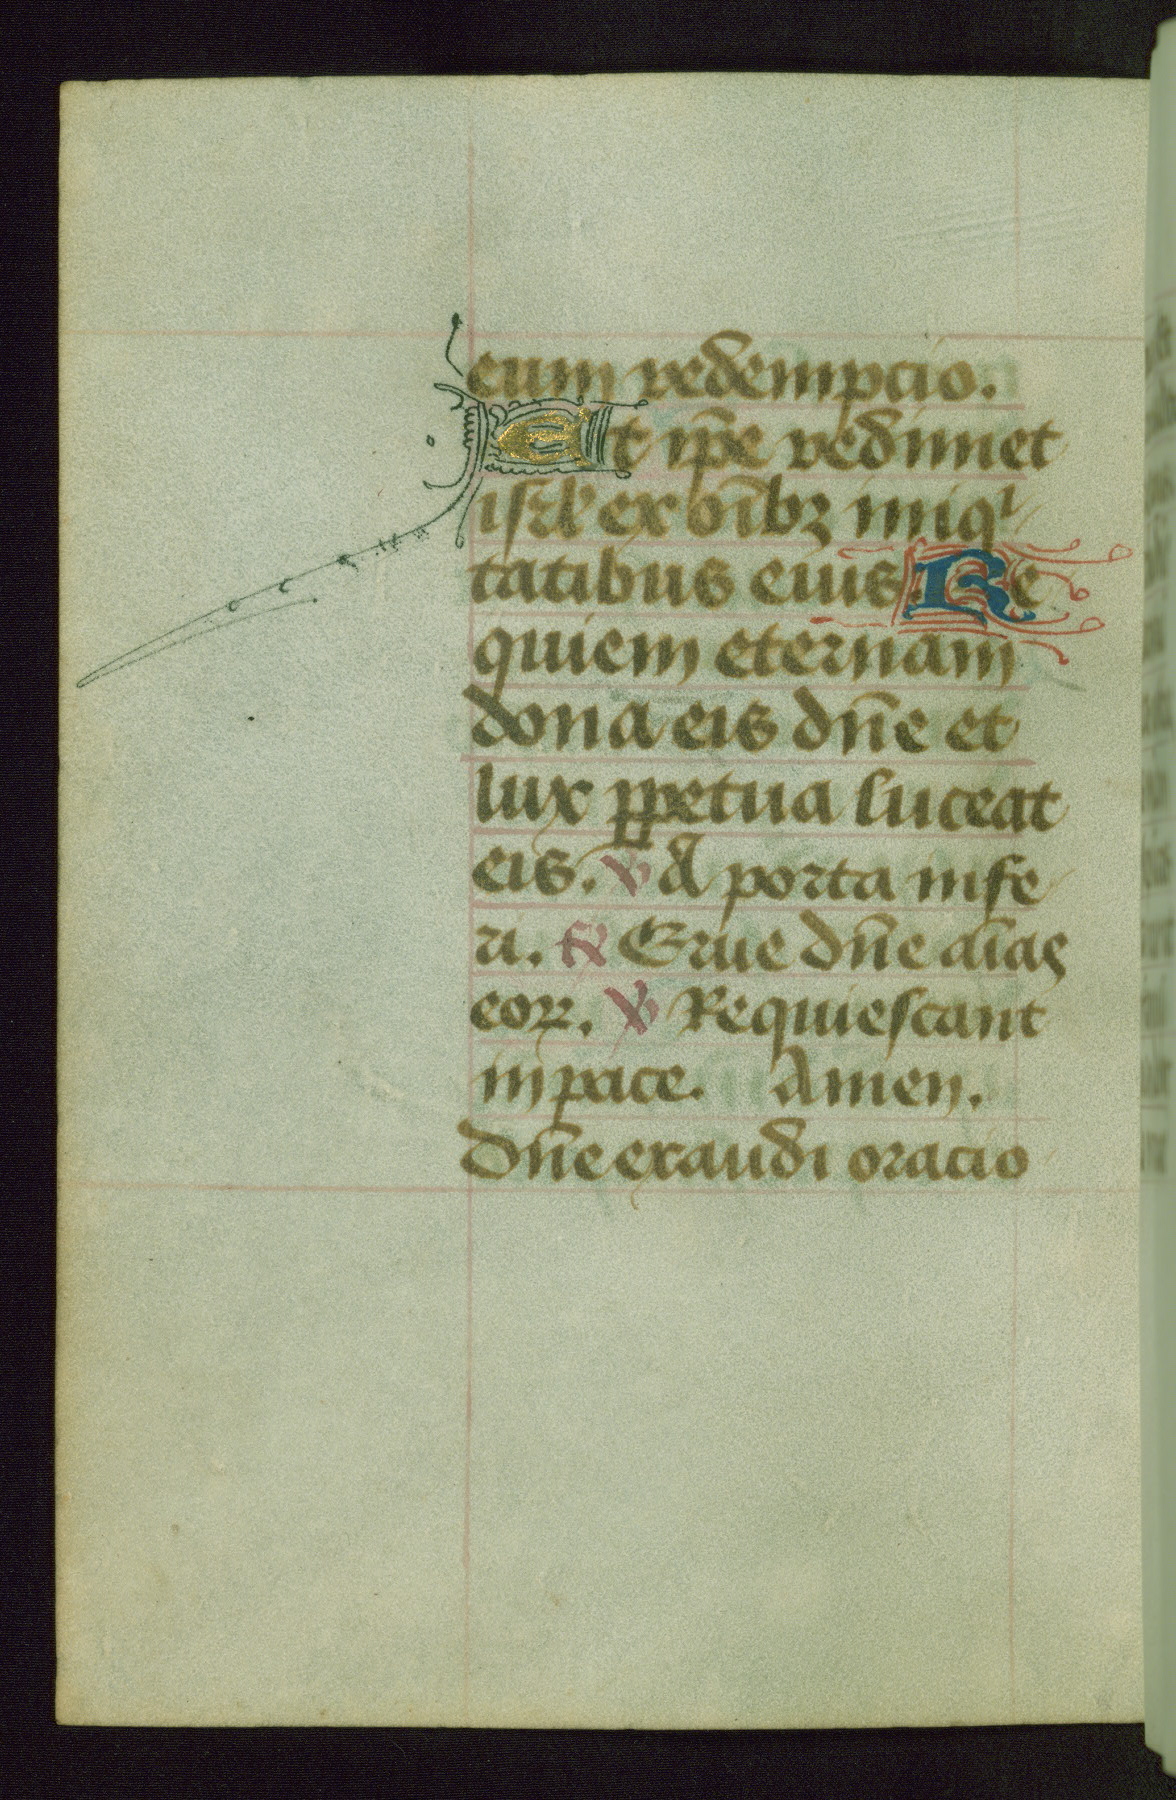 eum redempcio.
Et ip̄e redimet
isr̄l ex oīb⁊ iniqⁱ
tatibus eius Re
quiem eternam
dona eis dn̄e et
lux ꝑpetua luceat
eis. ℣ A porta infe
ri. ℟ Erue dn̄e aīas
eoꝝ. ℣ Requiescant
in pace. Amen.
Dn̄e exaudi oracio